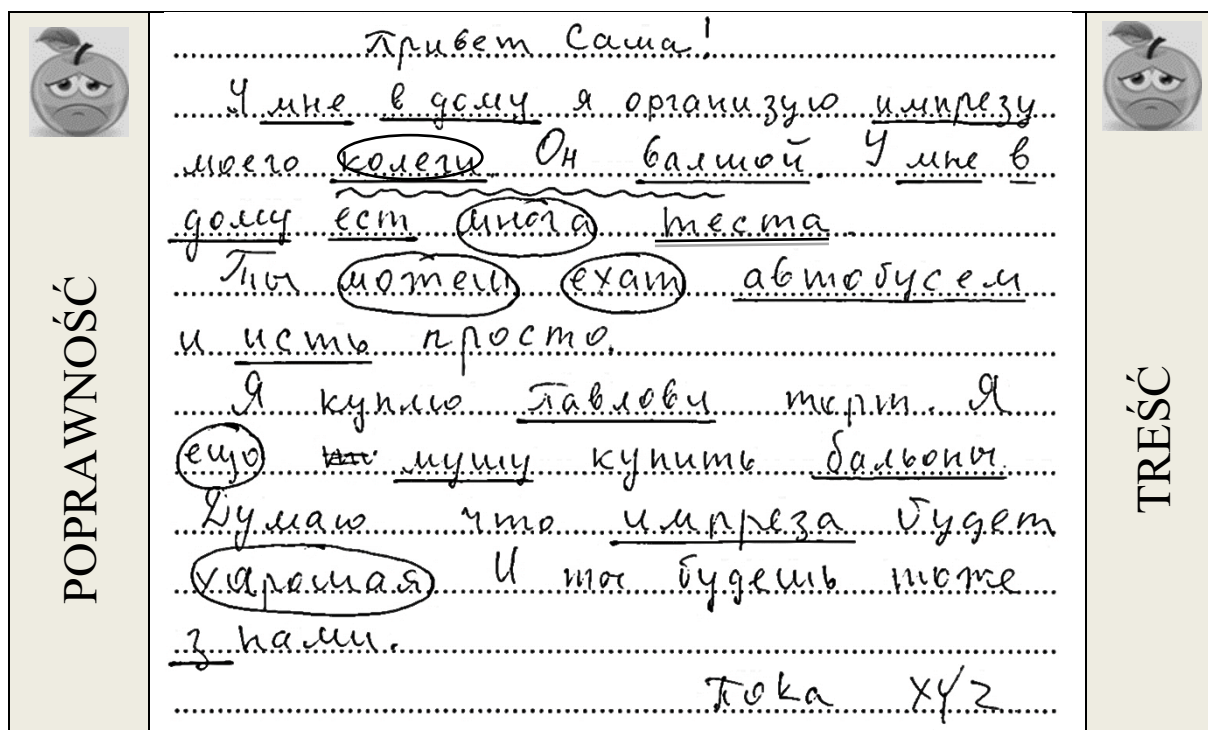 POPRAWNOŚĆ
Привет Саша!
У мне в дому я организую импрезу
моего колеги Он балшой. У мне в
дому ест многа теста.
Ты можеш ехат автобусем
и исть просто.
Я куплю Павлови торт. Я
ещо мушу купить бальоны.
Думаю что импреза будет
харошая И ты будешь тоже
з нами.
Пока XYZ
TREŚĆ